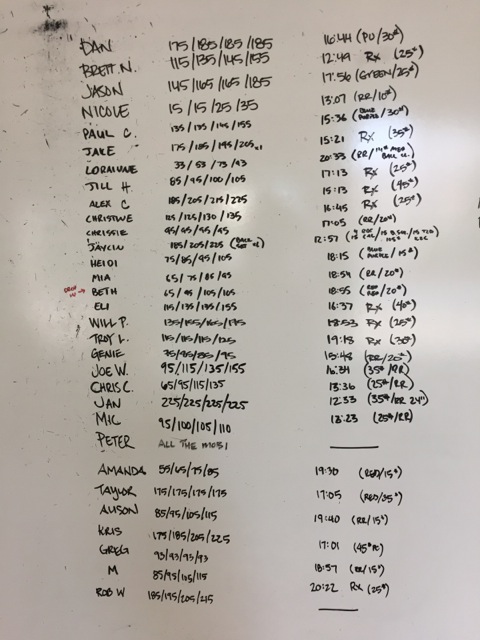 DAN 175/185/185/185 16:44 (PU/30#)
BRETT N. 115/135/145/155 12:49 Rx (25#)
JASON 145/165/165/185 17:56 (GREEN/25#)
NICOLE 15/15/25/35 13:07 (RR/10#)
PAUL C. 135/135/145/155 15:36 (BLUE PURPLE/30#)
JAKE 175/185/195/205 x1 15:21 Rx (35#)
LORAINNE 33/53/73/93 20:33 (RR/14# MED BALL CL.)
JILL H. 85/95/100/105 17:13 Rx (25#)
ALEX C 185/205/215/225 15:13 Rx (45#)
CHRISTINE 125/125/130/135 16:45 Rx (25#)
CHRISSIE 45/45/45/45 17:05 (RR/20#)
JAYCIN 185/205/225 12:57
HEIDI 75/85/95/105 18:15 (BLUE PURPLE/15#)
MIA 65/75/85/95 18:54 (RR/20#)
DROP IN → BETH 65/95/105/105 18:55 (RED/20#)
ELI 115/135/135/155 16:37 Rx (40#)
WILL P. 135/155/165/175 18:53 Rx (25#)
TROY L. 115/115/115/125 19:18 Rx (30#)
GENIE 75/95/85/95 15:48 (RR/20#)
JOE W. 95/115/135/155 16:34 (35#/PR)
CHRIS C. 65/95/115/135 13:36 (25#/RR)
JAN 225/225/225/225 12:33 (35#/RR 24")
MIC 95/100/105/110 13:23 (25#/RR)
PETER ALL THE MOBI
AMANDA 55/65/75/85 19:30 (RED/15#)
TAYLOR 175/175/175/175 17:05 (RED/35#)
ALISON 85/95/105/115 19:40 (RR/15#)
KRIS 175/185/205/225
GREG 93/93/93/93 17:01 (45# PC)
M 85/95/105/115 18:57 (RR/15#)
ROB W 185/195/205/215 20:22 Rx (25#)